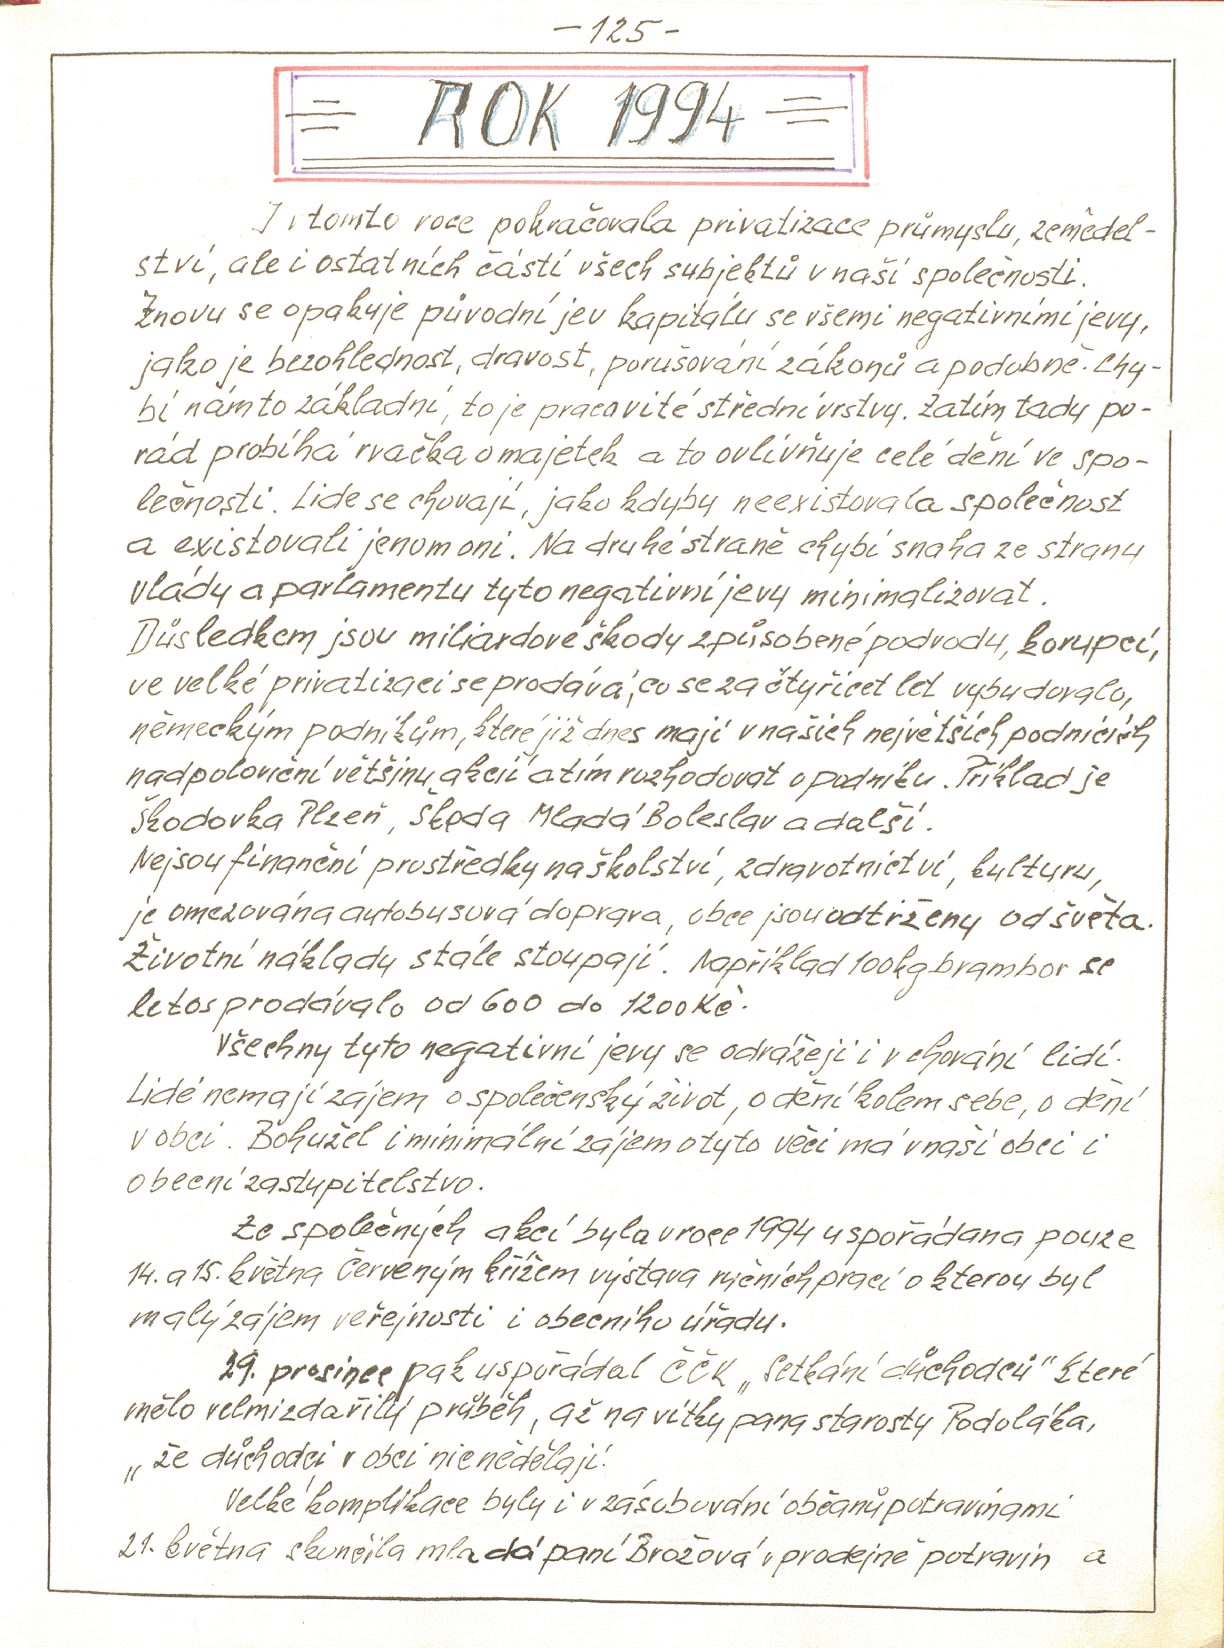 - 125 -
ROK 1994
I v tomto roce pokračovala privatizace průmyslu, zemědel-
ství, ale i ostatních částí všech subjektů v naší společnosti.
Znovu se opakuje původní jev kapitálu se všemi negativními jevy,
jako je bezohlednost, dravost, porušování zákonů a podobně. Chy-
bí nám to základní, to je pracovité střední vrstvy. Zatím tady po-
rád probíhá rvačka o majetek a to ovlivňuje celé dění ve spo-
lečnosti. Lide se chovají, jako kdyby neexistovala společnost
a existovali jenom oni. Na druhé straně chybí snaha ze strany
vlády a parlamentu tyto negativní jevy minimalizovat.
Důsledkem jsou miliardové škody způsobené podvody, korupcí,
ve velké privatizaci se prodává, co se za čtyřicet let vybudovalo,
německým podnikům, které již dnes mají v našich největších podnicích
nadpoloviční většinu akcií a tím rozhodovat o podniku. Příklad je
Škodovka Plzeň, Škoda Mladá Boleslav a další.
Nejsou finanční prostředky na školství, zdravotnictví, kulturu,
je omezována autobusová doprava, obce jsou odtrženy od světa.
Životní náklady stále stoupají. Například 100kg brambor se
letos prodávalo od 600 do 1200 Kč.
Všechny tyto negativní jevy se odrážejí i v chování lidí.
Lidé nemají zájem o společenský život, o dění kolem sebe, o dění
v obci. Bohužel i minimální zájem o tyto věci má v naší obci i
obecní zastupitelstvo.
Ze společných akcí byla v roce 1994 uspořádana pouze
14. a 15. května Červeným křížem výstava ručních prací o kterou byl
malý zájem veřejnosti i obecního úřadu.
29. prosince pak uspořádal ČČK „Setkání důchodců" které
mělo velmi zdařilý průběh, až na vítky pana starosty Podoláka,
„že důchodci v obci nic nedělají.
Velké komplikace byly i v zásobování občanů potravinami
21. května skončila mladá paní Brožová v prodejně potravin a